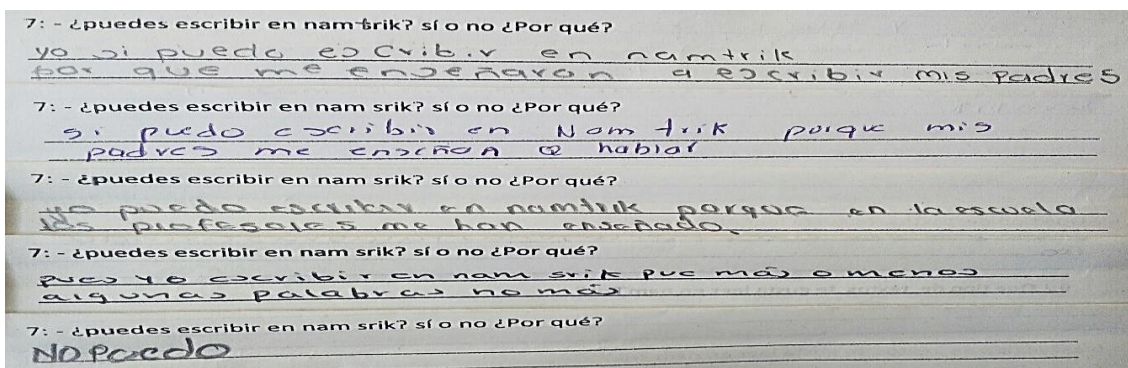 7: - ¿puedes escribir en namtrik? sí o no ¿Por qué?
yo si puedo escribir en namtrik
por que me enseñaron a escribir mis Padres
7: - ¿puedes escribir en nam srik? sí o no ¿Por qué?
si puedo escribir en Nam trik porque mis
padres me enseñan a hablar
7: - ¿puedes escribir en nam srik? sí o no ¿Por qué?
yo puedo escribir en namtrik porque en la escuela
los profesoles me han enseñado.
7: - ¿puedes escribir en nam srik? sí o no ¿Por qué?
pues yo escribir en nam srik pue más o menos
algunas palabras no más
7: - ¿puedes escribir en nam srik? sí o no ¿Por qué?
NO Puedo